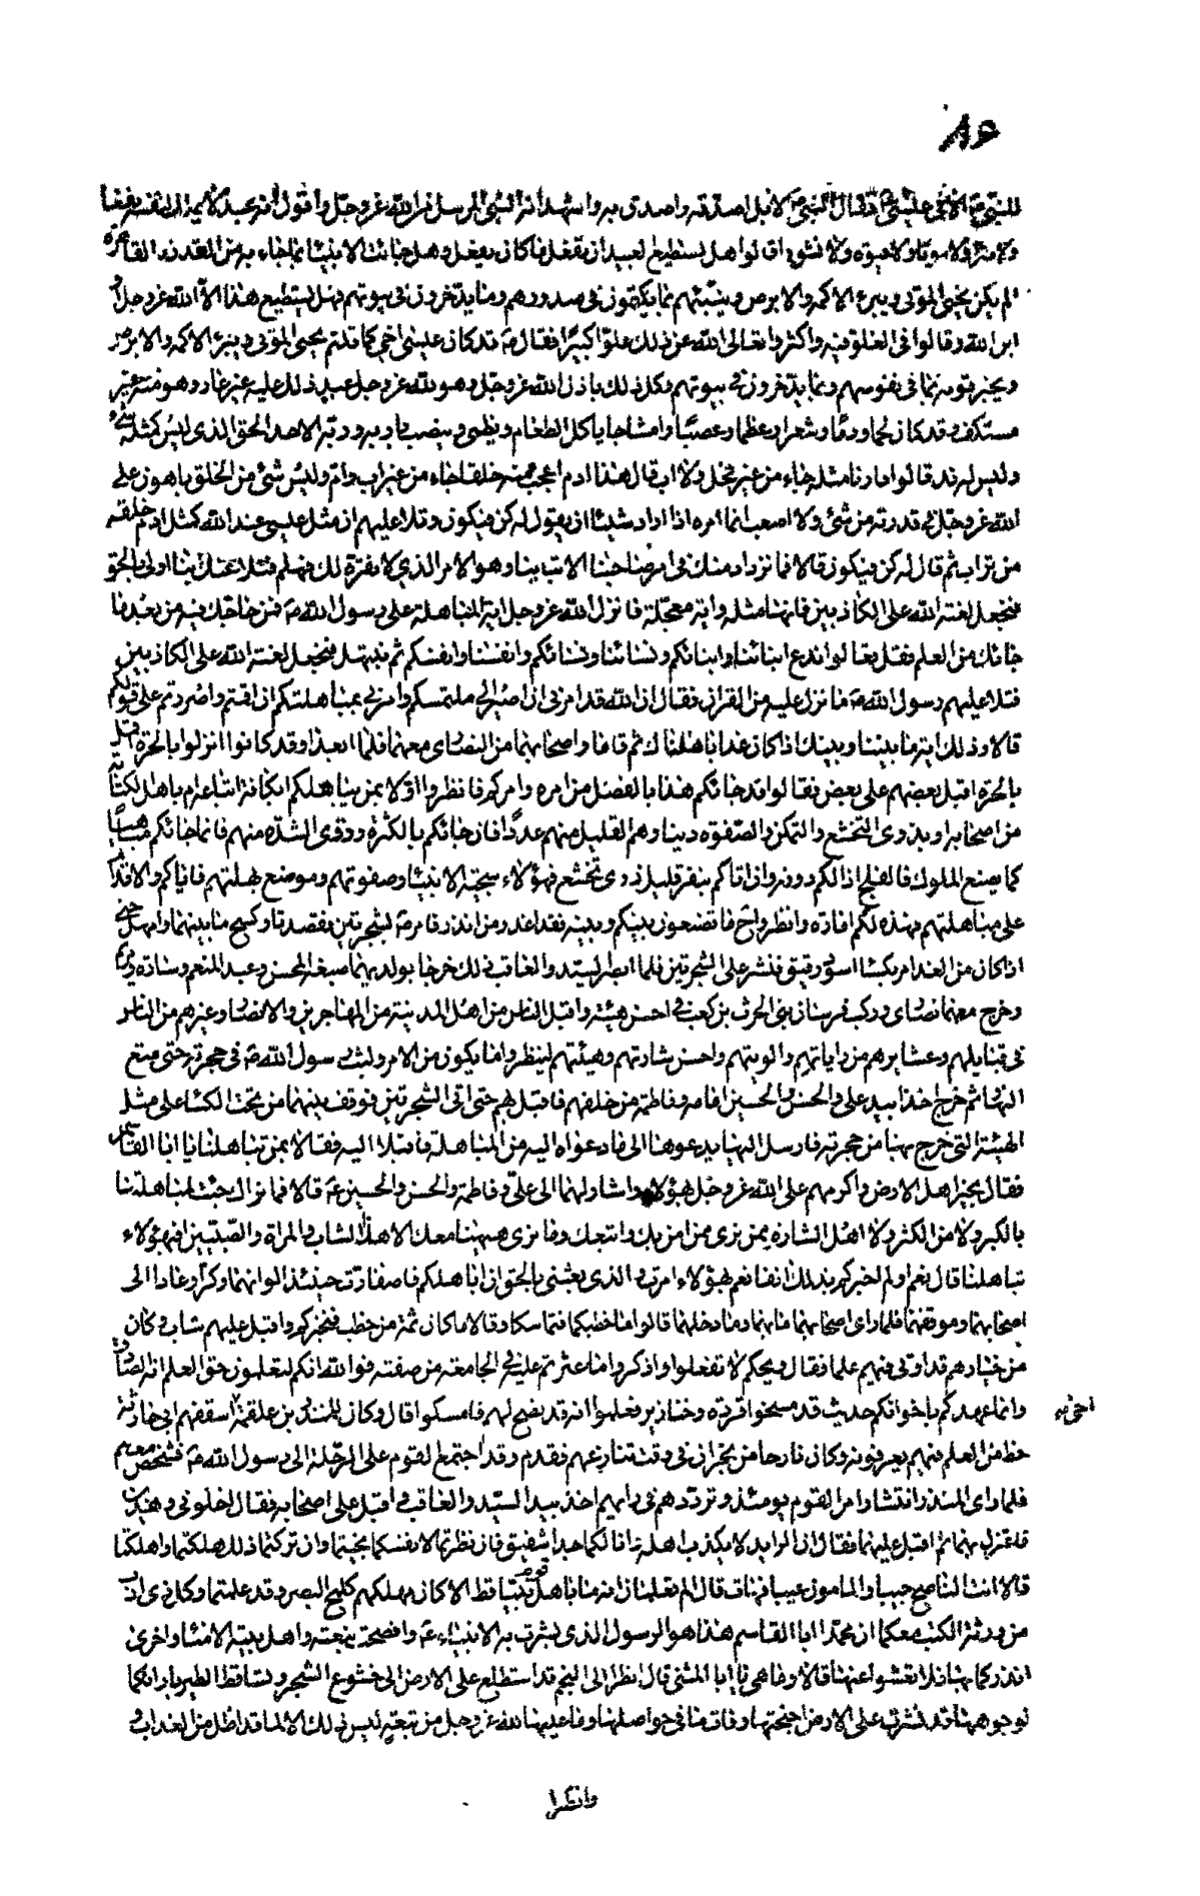 ٨٦
للنبي ص الا في عيسى ع فقال النبي ص لا بل اصدقه واصدق به واشهد انه النبي المرسل من الله عز وجل واقول انه عبد لا يملك لنفسه نفعا
ولا ضرا ولا موتا ولا حيوة ولا نشورا قالوا هل يستطيع العبد ان يفعل ما كان يفعل وهل جائت الانبيئا بما جاء به من القدرة القاهرة
الم يكن يحيى الموتى ويبرء الاكمه والابرص وينبئهم بما يكنون في صدورهم وما يدخرون في بيوتهم فهل يستطيع هذا الا الله عز وجل او
ابن الله وقالوا في الغلو فيه واكثروا تعالى الله عن ذلك علوا كبيرا فقال ص قد كان عيسى اخي كما قلتم يحيى الموتى ويبرء الاكمه والابرص
ويخبر قومه بما في نفوسهم وبما يدخرون في بيوتهم وكل ذلك باذن الله عز وجل وهو لله عز وجل عبد وذلك عليه غير عار وهو منه غير
مستنكف فقد كان لحما ودما وشعرا وعظما وعصبا وامشاجا ياكل الطعام ويظمى وينصب باربه وربه الاحد الحق الذي ليس كمثله شئ
وليس له ند قالوا فارنا مثله جاء من غير فحل ولا اب قال هذا ادم اعجب منه خلقا جاء من غير اب وام وليس شئ من الخلق باهون على
الله عز وجل في قدرته من شئ ولا اصعب انما امره اذا اراد شيئا ان يقول له كن فيكون وتلا عليهم ان مثل عيسى عند الله كمثل ادم خلقه
من تراب ثم قال له كن فيكون قالا فما نزداد منك في امر صاحبنا الا تباينا وهو الامر الذي لا نقره لك فهلم فنلاعنك اينا اولى بالحق
فنجعل لعنة الله على الكاذبين فانها مثلة واية معجلة فانزل الله عز وجل اية المباهلة على رسول الله ص فمن حاجك فيه من بعد ما
جائك من العلم فقل تعالوا ندع ابنائنا وابنائكم ونسائنا ونسائكم وانفسنا وانفسكم ثم نبتهل فنجعل لعنة الله على الكاذبين
فتلا عليهم رسول الله ص ما نزل عليه من القران فقال ان الله قد امرني ان اصير الى ملتمسكم وامرني بمباهلتكم ان اقمتم واصررتم على قولكم
قالا وذلك اية ما بيننا وبينك اذا كان غدا باهلناك ثم قاما واصحابهما من النصارى معهما فلما ابعدا وقد كانوا انزلوا بالحرة
بالحرة اقبل بعضهم على بعض فقالوا قد جائكم هذا بالفصل من امره وامركم فانظروا اولا بمن يباهلكم ابكافة اتباعه ام باهل الكتابة
من اصحابه او بذوي التخشع والتمكن والصفوة دينا وهم القليل منهم عددا فان جائكم بالكثرة وذوي الشدة منهم فانما جائكم مباهيا
كما يصنع الملوك فالفلج اذا لكم دونه وان اتاكم بنفر قليل ذوي تخشع فهؤلاء سجية الانبيئا وصفوتهم وموضع بهلتهم فاياكم والاقدام
على مباهلتهم فهذه لكم امارة وانظروا ح ما تصنعون بينكم وبينه فقد اعذر من انذر فامر ص بشجرتين فقصدتا وكسح ما بينهما وامهل حتى
اذا كان من الغد امر بكسا اسود رقيق فنشر على الشجرتين فلما ابصر السيد والعاقب ذلك خرجا بولديهما صبغة المحسن وعبد المنعم وسارة ومريم
وخرج معهما نصارى وركب فرسان بني الحرث بن كعب في احسن هيئة واقبل الناس من اهل المدينة من المهاجرين والانصار وغيرهم من الناس
في قبايلهم وعشايرهم من راياتهم والويتهم واحسن شارتهم وهيئتهم لينظروا ما يكون من الامر ولبث رسول الله ص في حجرته حتى متع
النهار ثم خرج اخذا بيد علي والحسن والحسين امامه وفاطمة من خلفهم فاقبل بهم حتى اتى الشجرتين فوقف بينهما من تحت الكساء على مثل
الهيئة التي خرج بها من حجرته فارسل اليهما يدعوهما الى ما دعواه اليه من المباهلة فاقبلا اليه فقالا بمن تباهلنا يا ابا القاسم
فقال بخير اهل الارض واكرمهم على الله عز وجل هؤلاء واشار لهما الى علي وفاطمة والحسن والحسين ع قالا فما نراك جئت لمباهلتنا
بالكبر ولا من الكثر ولا اهل الشارة ممن نرى ممن امن بك واتبعك وما نرى ههنا معك الا هذا الشاب والمراة والصبيين افبهؤلاء
تباهلنا قال نعم اولم اخبركم بذلك انفا نعم بهؤلاء امرت والذي بعثني بالحق ان اباهلكم فاصفارت حينئذ الوانهما وكرا وعادا الى
اصحابهما وموقفهما فلما راى اصحابهما ما بهما وما دخلهما قالوا ما خطبكما فتماسكا وقالا ما كان ثمة من خطب فنخبركم واقبل عليهم شاب وكان
من خيارهم قد اوتي فيهم علما فقال ويحكم لا تفعلوا واذكروا ما عثرتم عليه في الجامعة من صفته فوالله انكم لتعلمون حق العلم انه لصادق
وانما عهدكم باخوانكم حديث قد مسخوا قردة وخنازير فعلموا انه قد نصح لهم فامسكوا قال وكان للمنذر بن علقمة اسقفهم ابي حارثة
اخي
حظ من العلم فيهم يعرفونه وكان نازحا من نجران في وقت تنازعهم فقدم وقد اجتمع القوم على الرحلة الى رسول الله ص فشخص معهم
فلما راى المنذر انتشار امر القوم يومئذ وترددهم في رايهم اخذ بيد السيد والعاقب واقبل على اصحابه فقال اخلوني وهذين
فاعتزل بهما ثم اقبل عليهما فقال ان الرايد لا يكذب اهله وانا لكما جد شفيق فان نظرتما لانفسكما نجيتما وان تركتما ذلك هلكتما واهلكتما
قالا انت الناصح جيبا والمامون عيبا فهات قال الم تعلمان انه ما باهل قوم نبيا قط الا كان مهلكهم كلمح البصر وقد علمتما وكل ذي ارب
من ورثة الكتب معكما ان محمدا ابا القاسم هذا هو الرسول الذي بشرت به الانبياء ع وافصحت ببعته واهل بيته الامناء واخرى
انذركما بها فلا تعشوا عنها قالا وما هي يا ابا المثنى قال انظرا الى النجم قد استطلع على الارض الى خشوع الشجر وتساقط الطير بازائكما
لوجوههما قد نشرت على الارض اجنحتها وقاءت ما في حواصلها وما عليها لله عز وجل من تبعة ليس ذلك الا لما قد اظل من العذاب
وانظرا